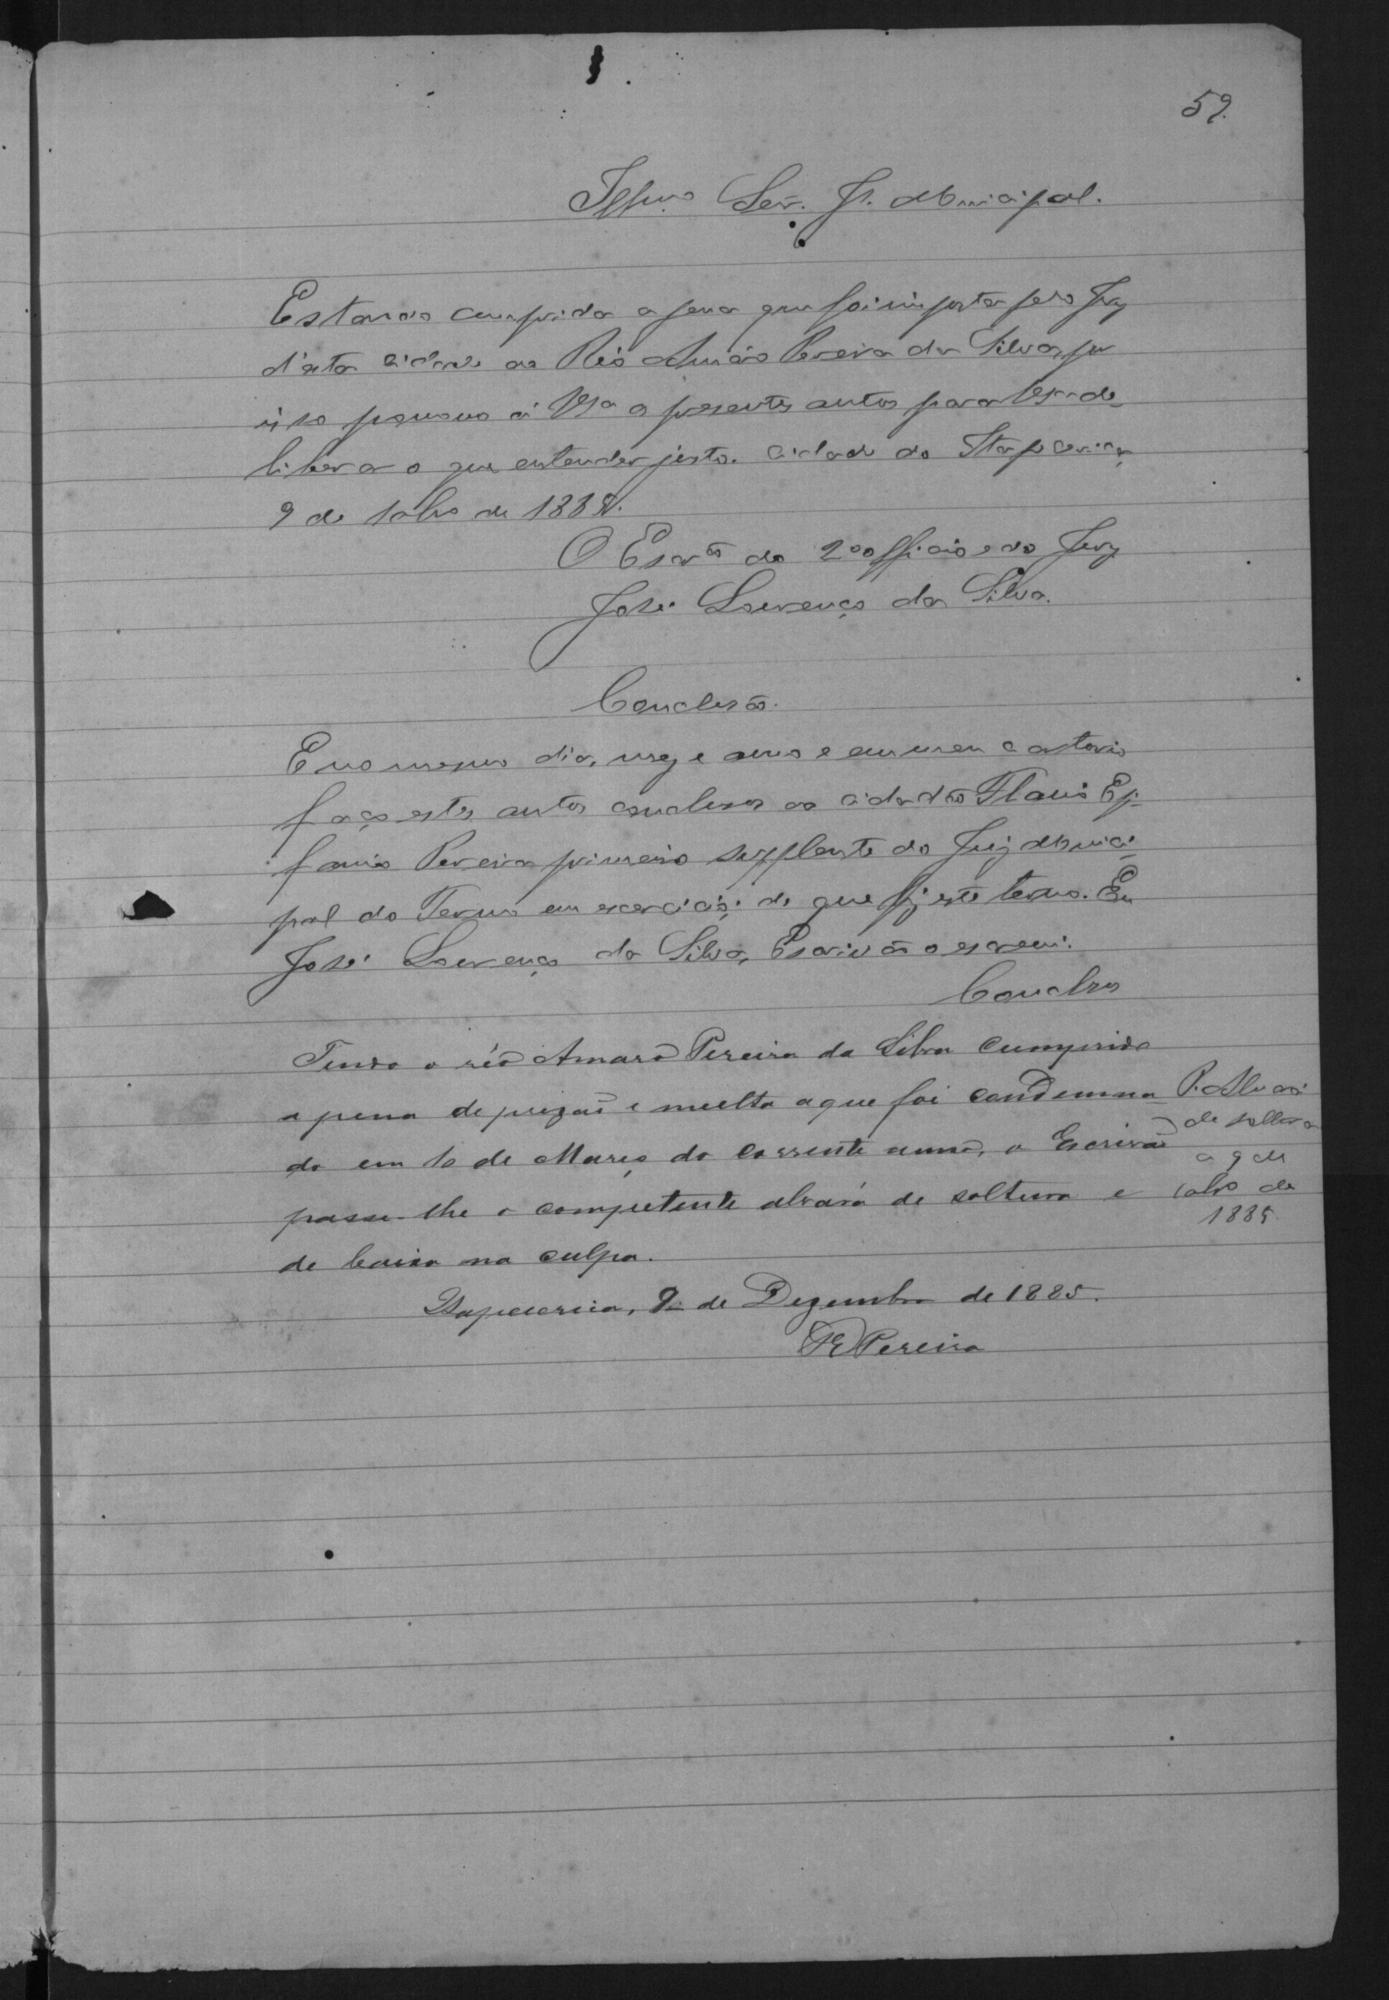 59.
Illmo Senr. Jz. Municipal.
Estando cumprida a pena que foi imposta pelo Jury
d'esta cidade ao Réo Amaro Pereira da Silva, por
isso
a Vsa os presentes autos para Vsa de-
liberar o que entender justo. Cidade de Itapecerica,
9 de 10bro de 1885.
O Escrão do 2º officio e do Jury
José Lourenço da Silva.
Conclusão.
E no mesmo dia, mez e anno e em meu cartorio
faço estes autos conclusos ao cidadão Flavio Epi-
fanio Pereira primeiro supplente do Juiz Munici-
pal do Termo em exercicio; de que fiz este termo. Eu
José Lourenço da Silva, Escrivão o escrevi.
Conclsos
Tendo o réo Amaro Pereira da Silva cumprido
a pena de prizaõ e multa a que foi condemna
do em 10 de Março do corrente anno, o Escrivaõ
passe-lhe o competente alvará de soltura e
de baixa na culpa.
Itapecerica, 9 de Dezembro de 1885.
FEPereira
P. Alvará
de soltura
a 9 de
10bro de
1885.